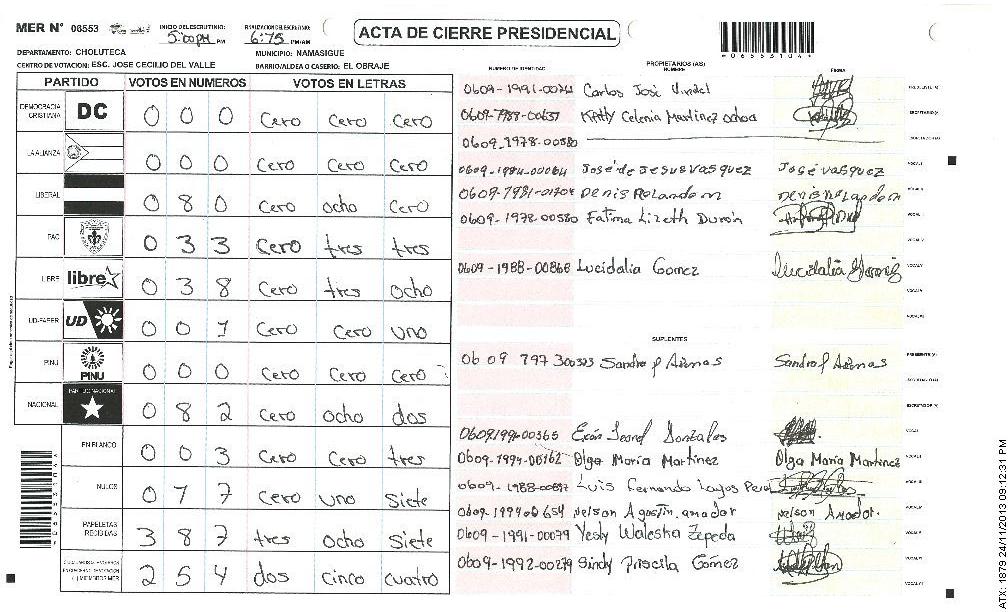 MER N° 06553
INICIO DEL ESCRUTINIO: 5:00 PM PM
FINALIZACION DEL ESCRUTINIO: 6:75 PM/AM
ACTA DE CIERRE PRESIDENCIAL
*06553104*
DEPARTAMENTO: CHOLUTECA
MUNICIPIO: NAMASIGUE
CENTRO DE VOTACION: ESC. JOSE CECILIO DEL VALLE
BARRIO/ALDEA O CASERIO: EL OBRAJE
PARTIDO VOTOS EN NUMEROS VOTOS EN LETRAS
DEMOCRACIA CRISTIANA DC 0 0 0 Cero Cero Cero
LA ALIANZA 0 0 0 Cero Cero Cero
LIBERAL 0 8 0 Cero ocho Cero
PAC 0 3 3 Cero tres tres
LIBRE libre 0 3 8 Cero tres ocho
UD-FAPER UD 0 0 1 Cero Cero uno
PINU PINU 0 0 0 Cero Cero Cero
NACIONAL PARTIDO NACIONAL 0 8 2 Cero ocho dos
EN BLANCO 0 0 3 Cero Cero tres
NULOS 0 1 7 Cero uno Siete
PAPELETAS RECIBIDAS 3 8 7 tres ocho Siete
2 5 4 dos cinco cuatro
NUMERO DE IDENTIDAD PROPIETARIOS (AS) NOMBRE FIRMA
Carlos José PRESIDENTE (A)
0609-1988-00637 Katty Celenia Martinez ochoa SECRETARIO (A)
0609-1978-00580
0609-1984-00064 José de Jesus vasquez José vasquez VOCAL I
Denis Rolando m Denis Rolando m
0609-1978-00580 Fatima Lizeth Durón
0609-1988-00868 Lucidalia Gomez Lucidalia Gomez
SUPLENTES
Sandro Sandro PRESIDENTE (A)
0609199400365 Gonzales
0609-1994-00162 Olga María Martinez Olga Maria Martinez
Luis Fernando Lagos
Nelson Agustin amador Nelson Amador.
0609-1991-00079 Yesly Waleska Zepeda
0609-1992-00279 Sindy Priscila Gómez
ATX: 1979 24/11/2013 09:12:31 PM